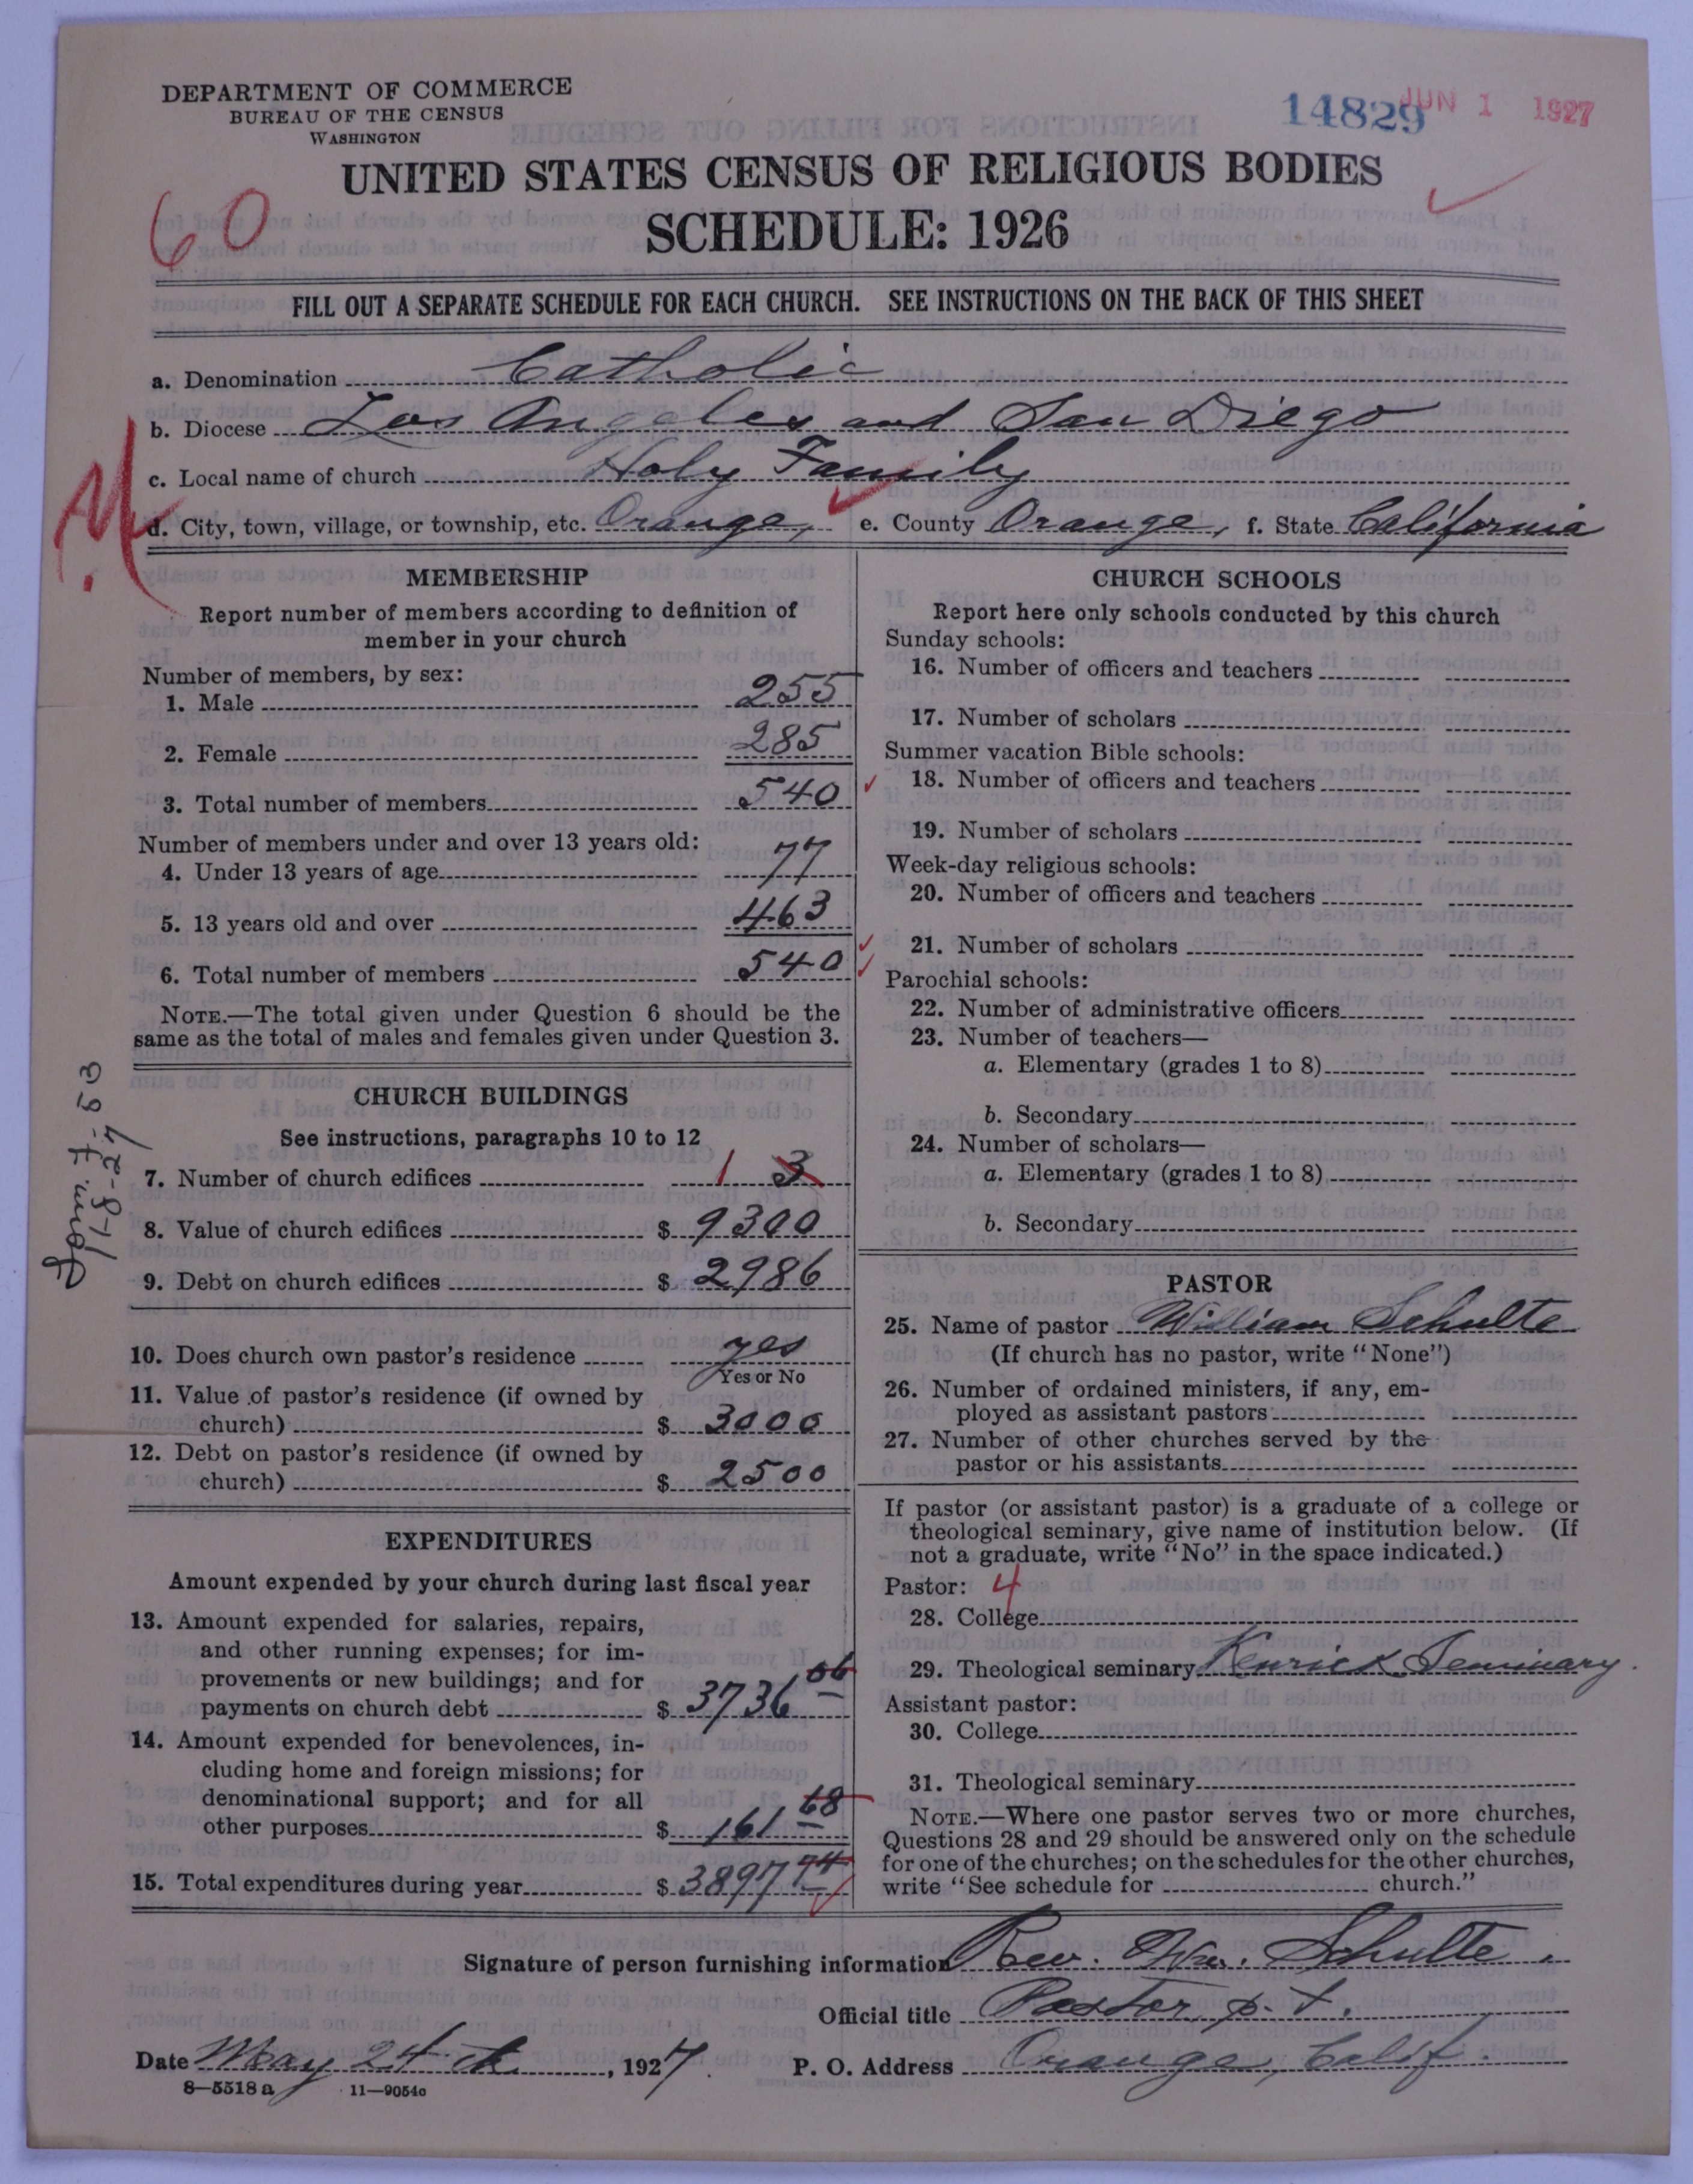 DEPARTMENT OF COMMERCE
BUREAU OF THE CENSUS
WASHINGTON
14829
JUN 1 1927
UNITED STATES CENSUS OF RELIGIOUS BODIES
60
SCHEDULE: 1926
FILL OUT A SEPARATE SCHEDULE FOR EACH CHURCH. SEE INSTRUCTIONS ON THE BACK OF THIS SHEET
a. Denomination Catholic
b. Diocese Los Angeles and San Diego
c. Local name of church Holy Family
d. City, town, village, or township, etc. Orange, e. County Orange, f. State California
MEMBERSHIP
Report number of members according to definition of
member in your church
Number of members, by sex:
1. Male 255
2. Female 285
3. Total number of members 540
Number of members under and over 13 years old:
4. Under 13 years of age 77
5. 13 years old and over 463
6. Total number of members 540
NOTE.—The total given under Question 6 should be the
same as the total of males and females given under Question 3.
CHURCH BUILDINGS
See instructions, paragraphs 10 to 12
7. Number of church edifices 1 3
8. Value of church edifices $ 9300
9. Debt on church edifices $ 2986
10. Does church own pastor's residence yes
Yes or No
11. Value of pastor's residence (if owned by
church) $ 3000
12. Debt on pastor's residence (if owned by
church) $ 2500
7-53
11-8-27
EXPENDITURES
Amount expended by your church during last fiscal year
13. Amount expended for salaries, repairs,
and other running expenses; for im-
provements or new buildings; and for
payments on church debt $ 3736 06
14. Amount expended for benevolences, in-
cluding home and foreign missions; for
denominational support; and for all
other purposes $ 161 68
15. Total expenditures during year $ 3897 74
CHURCH SCHOOLS
Report here only schools conducted by this church
Sunday schools:
16. Number of officers and teachers
17. Number of scholars
Summer vacation Bible schools:
18. Number of officers and teachers
19. Number of scholars
Week-day religious schools:
20. Number of officers and teachers
21. Number of scholars
Parochial schools:
22. Number of administrative officers
23. Number of teachers—
a. Elementary (grades 1 to 8)
b. Secondary
24. Number of scholars—
a. Elementary (grades 1 to 8)
b. Secondary
PASTOR
25. Name of pastor William Schulte
(If church has no pastor, write "None")
26. Number of ordained ministers, if any, em-
ployed as assistant pastors
27. Number of other churches served by the
pastor or his assistants
If pastor (or assistant pastor) is a graduate of a college or
theological seminary, give name of institution below. (If
not a graduate, write "No" in the space indicated.)
Pastor: 4
28. College
29. Theological seminary Kenrick Seminary.
Assistant pastor:
30. College
31. Theological seminary
NOTE.—Where one pastor serves two or more churches,
Questions 28 and 29 should be answered only on the schedule
for one of the churches; on the schedules for the other churches,
write "See schedule for church."
Signature of person furnishing information Rev. Wm. Schulte.
Official title Pastor, p. t.
Date May 24th, 1927. P. O. Address Orange, Calif.
8—5518 a 11—9054a